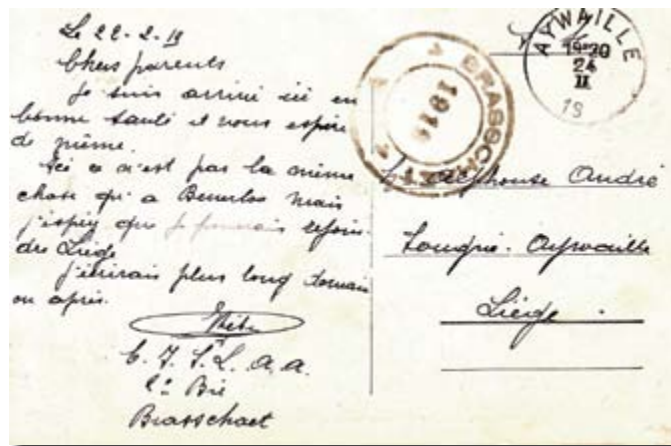 Le 22-2-19
Chers parents
Je suis arrivé ici en
bonne santé et vous espère
de même.
Ici ce n'est pas la même
chose qu'a Beverloo mais
j'espère que je pourrais rejoin-
dre Liège
J'écrirais plus long demain
ou après.
C. I. S. L. A. A.
Bie
Brasschaet
BRASSCHAET
1919
AYWAILLE
19-20
24
II
19
Alphonse André
Aywaille
Liège